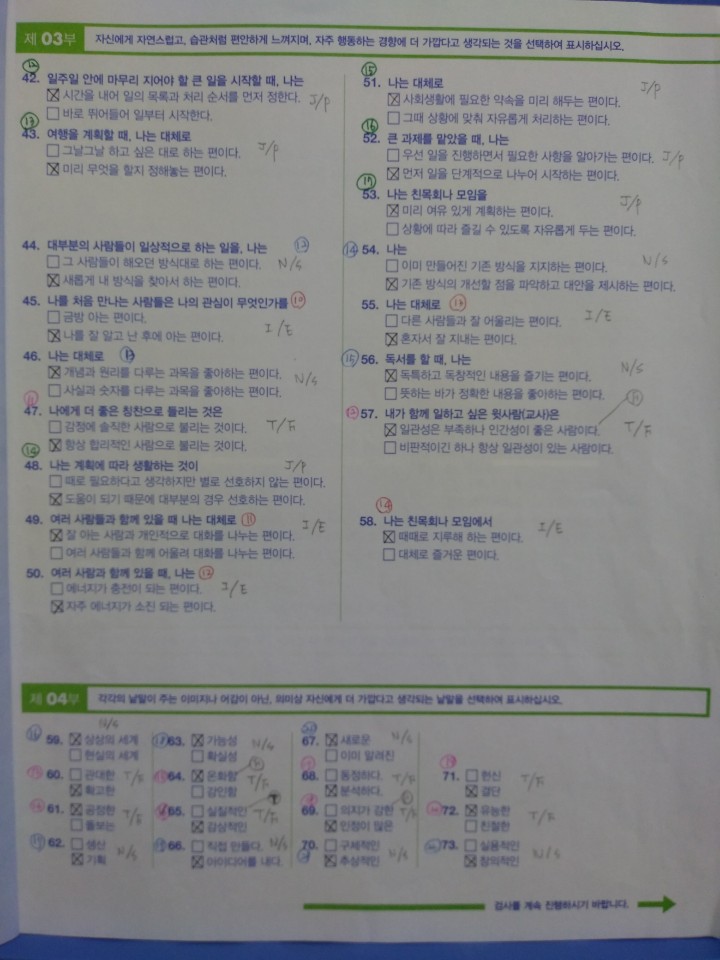 제 03부 자신에게 자연스럽고, 습관처럼 편안하게 느껴지며, 자주 행동하는 경향에 더 가깝다고 생각되는 것을 선택하여 표시하십시오.
⑫
42. 일주일 안에 마무리 지어야 할 큰 일을 시작할 때, 나는
시간을 내어 일의 목록과 처리 순서를 먼저 정한다. J/P
바로 뛰어들어 일부터 시작한다.
⑬
43. 여행을 계획할 때, 나는 대체로
그날그날 하고 싶은 대로 하는 편이다. J/P
미리 무엇을 할지 정해놓는 편이다.
44. 대부분의 사람들이 일상적으로 하는 일을, 나는 ⑫
그 사람들이 해오던 방식대로 하는 편이다. N/S
새롭게 내 방식을 찾아서 하는 편이다.
45. 나를 처음 만나는 사람들은 나의 관심이 무엇인가를 ⑩
금방 아는 편이다.
나를 잘 알고 난 후에 아는 편이다. I/E
46. 나는 대체로 ⑬
개념과 원리를 다루는 과목을 좋아하는 편이다.
사실과 숫자를 다루는 과목을 좋아하는 편이다. N/S
⑪
47. 나에게 더 좋은 칭찬으로 들리는 것은
감정에 솔직한 사람으로 불리는 것이다. T/F
항상 합리적인 사람으로 불리는 것이다.
⑭
48. 나는 계획에 따라 생활하는 것이 J/P
때로 필요하다고 생각하지만 별로 선호하지 않는 편이다.
도움이 되기 때문에 대부분의 경우 선호하는 편이다.
49. 여러 사람들과 함께 있을 때 나는 대체로 ⑪
잘 아는 사람과 개인적으로 대화를 나누는 편이다. I/E
여러 사람들과 함께 어울려 대화를 나누는 편이다.
50. 여러 사람과 함께 있을 때, 나는 ⑫
에너지가 충전이 되는 편이다. I/E
자주 에너지가 소진 되는 편이다.
⑮
51. 나는 대체로 J/P
사회생활에 필요한 약속을 미리 해두는 편이다.
그때 상황에 맞춰 자유롭게 처리하는 편이다.
⑯
52. 큰 과제를 맡았을 때, 나는
우선 일을 진행하면서 필요한 사항을 알아가는 편이다. J/P
먼저 일을 단계적으로 나누어 시작하는 편이다.
⑰
53. 나는 친목회나 모임을 J/P
미리 여유 있게 계획하는 편이다.
상황에 따라 즐길 수 있도록 자유롭게 두는 편이다.
⑭ 54. 나는
이미 만들어진 기존 방식을 지지하는 편이다. N/S
기존 방식의 개선할 점을 파악하고 대안을 제시하는 편이다.
55. 나는 대체로 ⑬
다른 사람들과 잘 어울리는 편이다. I/E
혼자서 잘 지내는 편이다.
⑮ 56. 독서를 할 때, 나는
독특하고 독창적인 내용을 즐기는 편이다. N/S
뜻하는 바가 정확한 내용을 좋아하는 편이다.
⑫ 57. 내가 함께 일하고 싶은 윗사람(교사)은 F
일관성은 부족하나 인간성이 좋은 사람이다. T/F
비판적이긴 하나 항상 일관성이 있는 사람이다.
⑭
58. 나는 친목회나 모임에서
때때로 지루해 하는 편이다. I/E
대체로 즐거운 편이다.
제 04부 각각의 낱말이 주는 이미지나 어감이 아닌, 의미상 자신에게 더 가깝다고 생각되는 낱말을 선택하여 표시하십시오.
⑯ 59. 상상의 세계 N/S
현실의 세계
60. 관대한 T/F
확고한
61. 공정한 T/F
돌보는
62. 생산 N/S
기획
63. 가능성 N/S
확실성
64. 온화함 F T/F
강인함
65. 실질적인 T T/F
감상적인
66. 직접 만들다. N/S
아이디어를 내다.
67. 새로운 N/S
이미 알려진
68. 동정하다. T/F
분석하다.
69. 의지가 강한 T/F
인정이 많은
70. 구체적인 N/S
추상적인
71. 헌신 T/F
결단
72. 유능한 T/F
친절한
73. 실용적인 N/S
창의적인
검사를 계속 진행하시기 바랍니다.